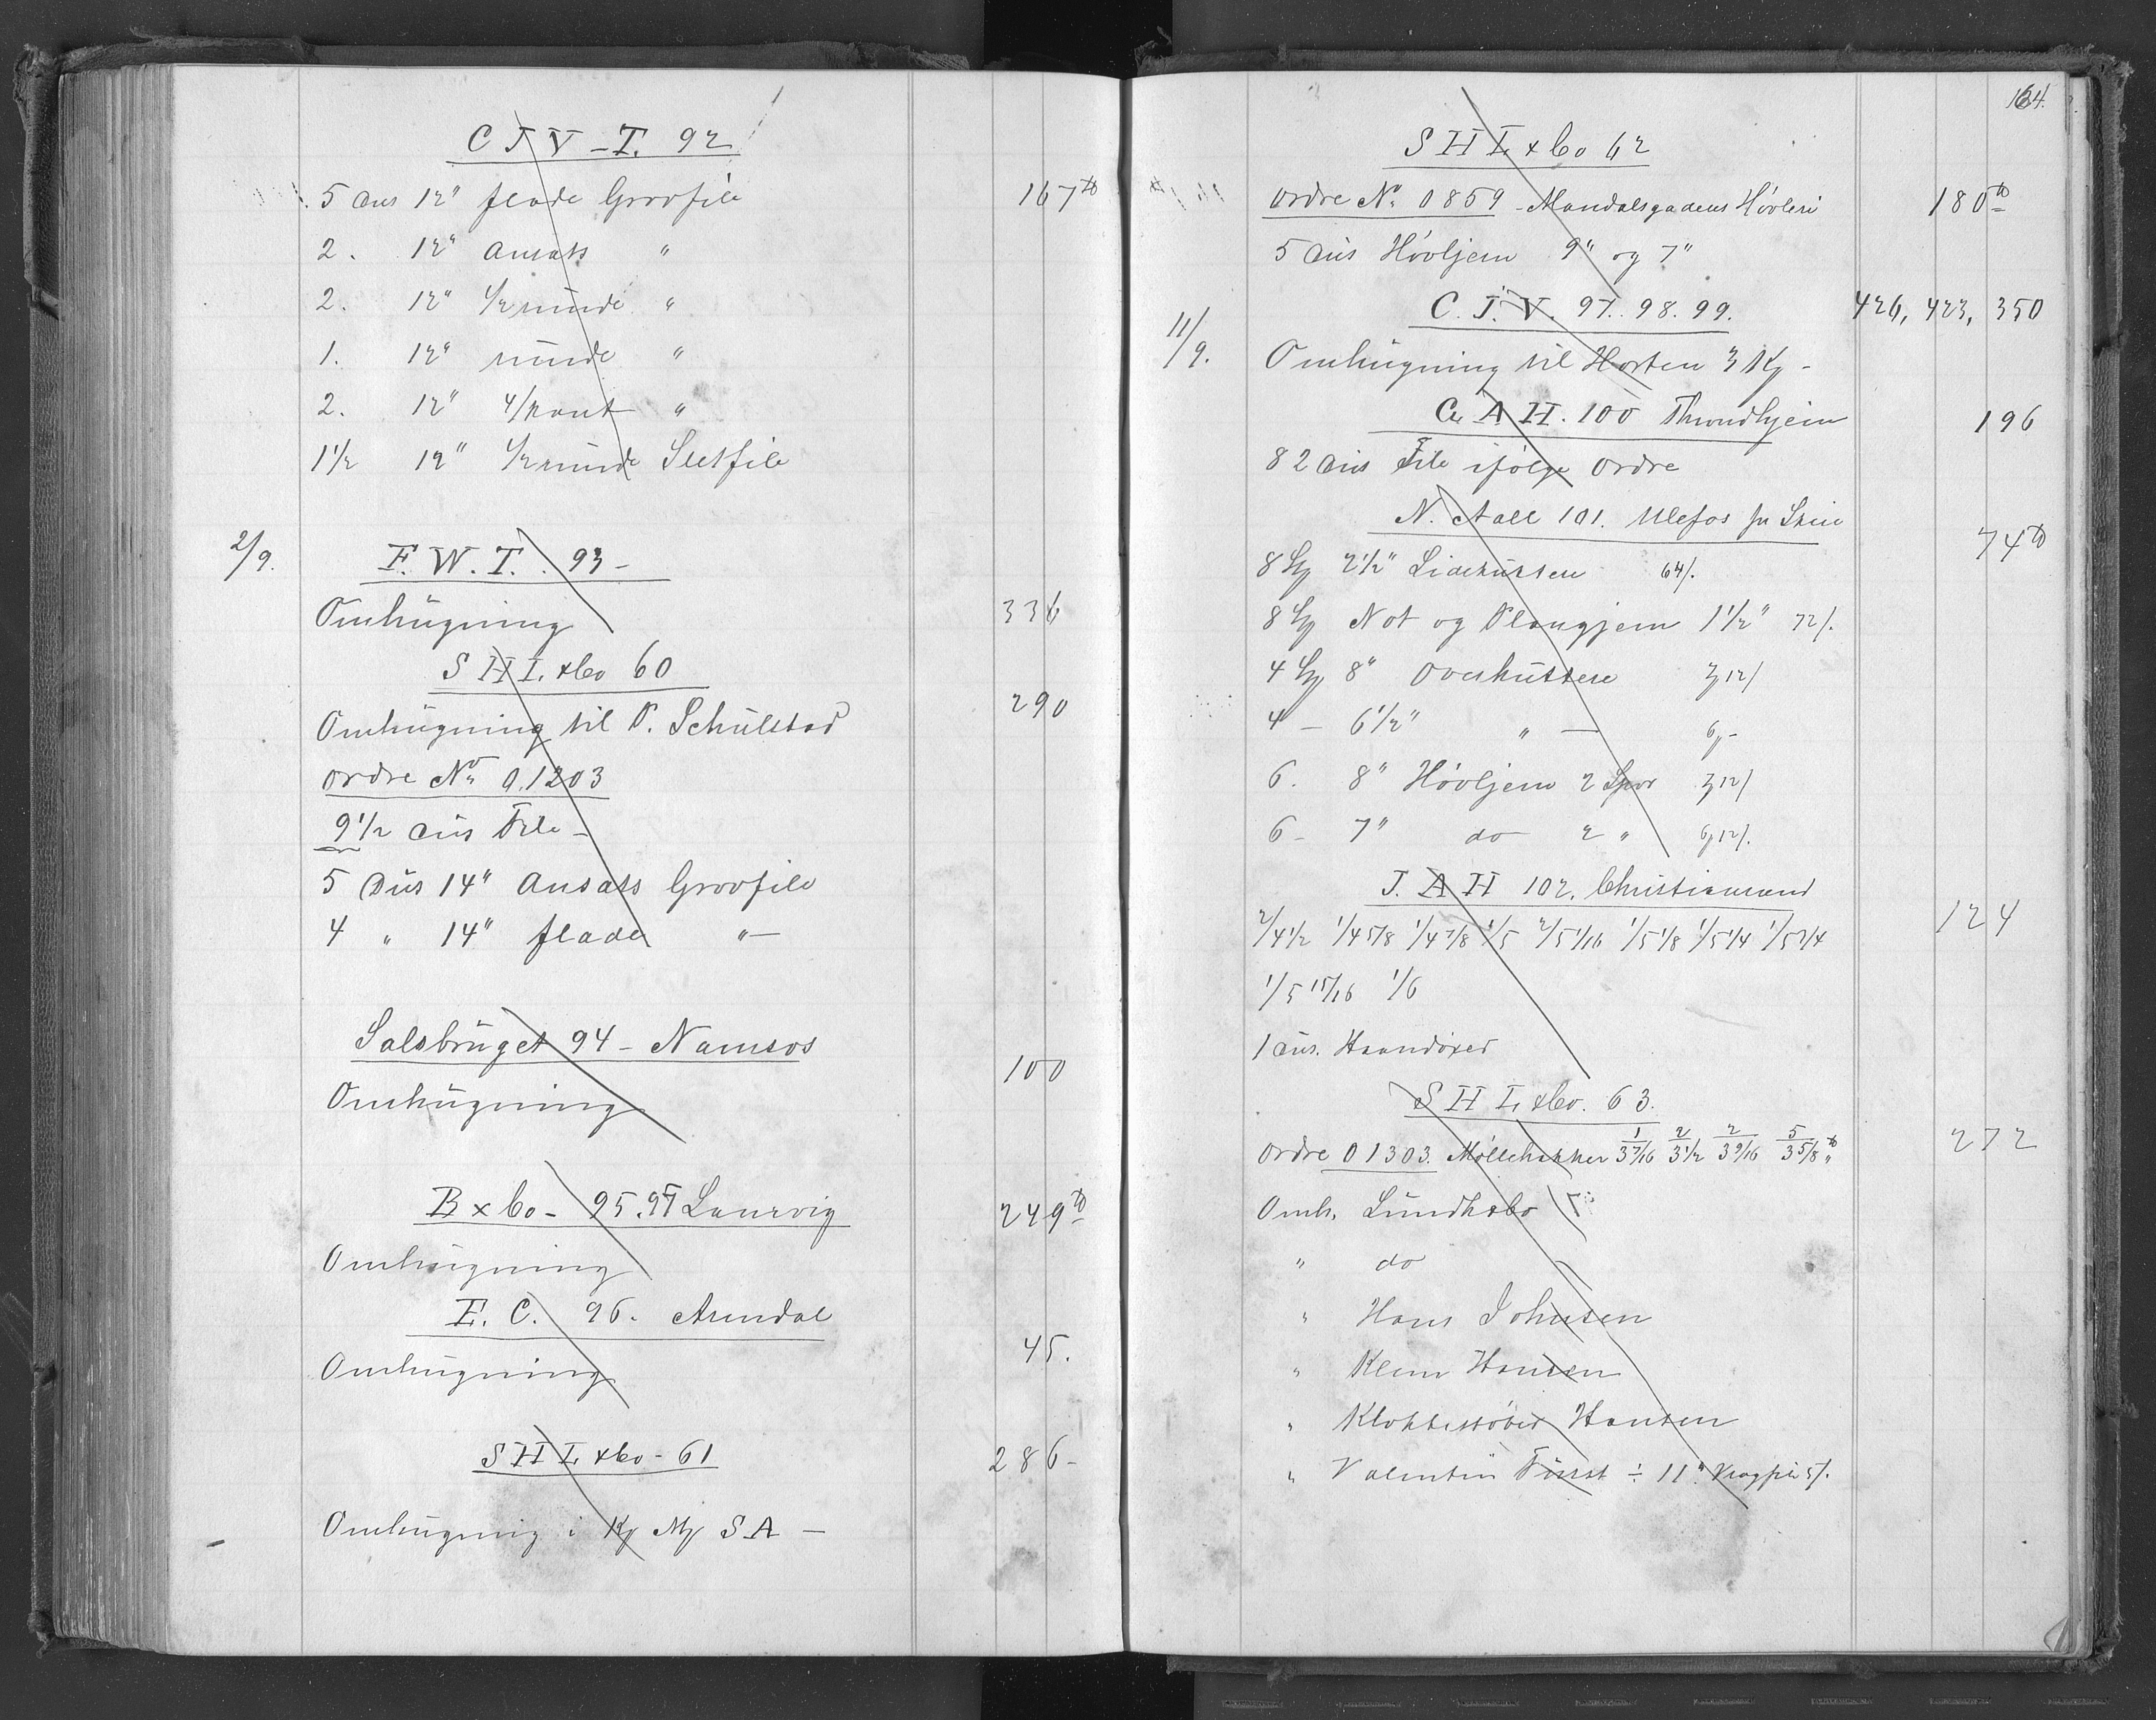 C J V – T. 92
5 Dus 12" flade Grovfile 167 ℔
2. 12" Ansats "
2. 12" 1/2 runde "
1. 12" runde "
2. 12" 4/kant "
1 1/2 12" 1/2 runde Sletfile
2/9. F. W. T. 93 –
Omhugning 336
S H L & Co 60
Omhugning til P. Schulstad 290
Ordre No 0.1203
9 1/2 Dus File –
5 Dus 14" Ansats Grovfile
4 " 14" flade " –
Salsbruget 94 – Namsos
Omhugning 100
B & Co – 95. 97 Laurvig
249 ℔
Omhugning
E. C. 96. Arendal
Omhugning 45.
S H L & Co – 61
286 –
Omhugning i Kj Mj S A –
164.
S H L & Co 62
Ordre No 0859 – Mandalsgadens Høvleri 180 ℔
5 Dus Høvljern 9" og 7"
C. J. V. 97. 98. 99. 426, 423, 350
11/9. Omhugning til Horten 3 Kj –
A H. 100 Throndhjem 196
82 Dus File ifølge Ordre
N. Aall 101. Ulefos pr Skien
74 ℔
8 2 1/2" Sidekuttere 64/.
8 Not og Plougjern 1 1/2" 72/.
4 8" Overkuttere 12/
4 – 6 1/2" " –
6. 8" Høvljern 2 Spor 12/
6 – 7" do 2 " 12/.
J. A H 102. Christiansund
2/4 1/2 1/4 5/8 1/4 7/8 1/5 2/5 1/16 1/5 1/8 1/5 1/4 1/5 3/4 124
1/5 15/16 1/6
1 Dus. Haandøxer
S H L & Co. 63.
Ordre 01303. Møllehakker 1/3 7/16 2/3 1/2 2/3 9/16 5/3 5/8 ℔ 272
Omh. Lundhsbo
" do
" Hans Johnsen
" Klem Hansen
" Klokkestøber Hansen
" Valentin Fürst ÷ 11"